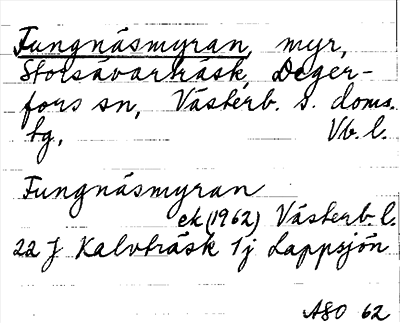 Tungnäsmyran, myr,
Storsävarträsk, Deger-
fors sn, Västerb. s. doms.
tg, Vb. l.
Tungnäsmyran
ek (1962) Västerb. l.
22 J Kalvträsk 1j Lappsjön
ASO 62